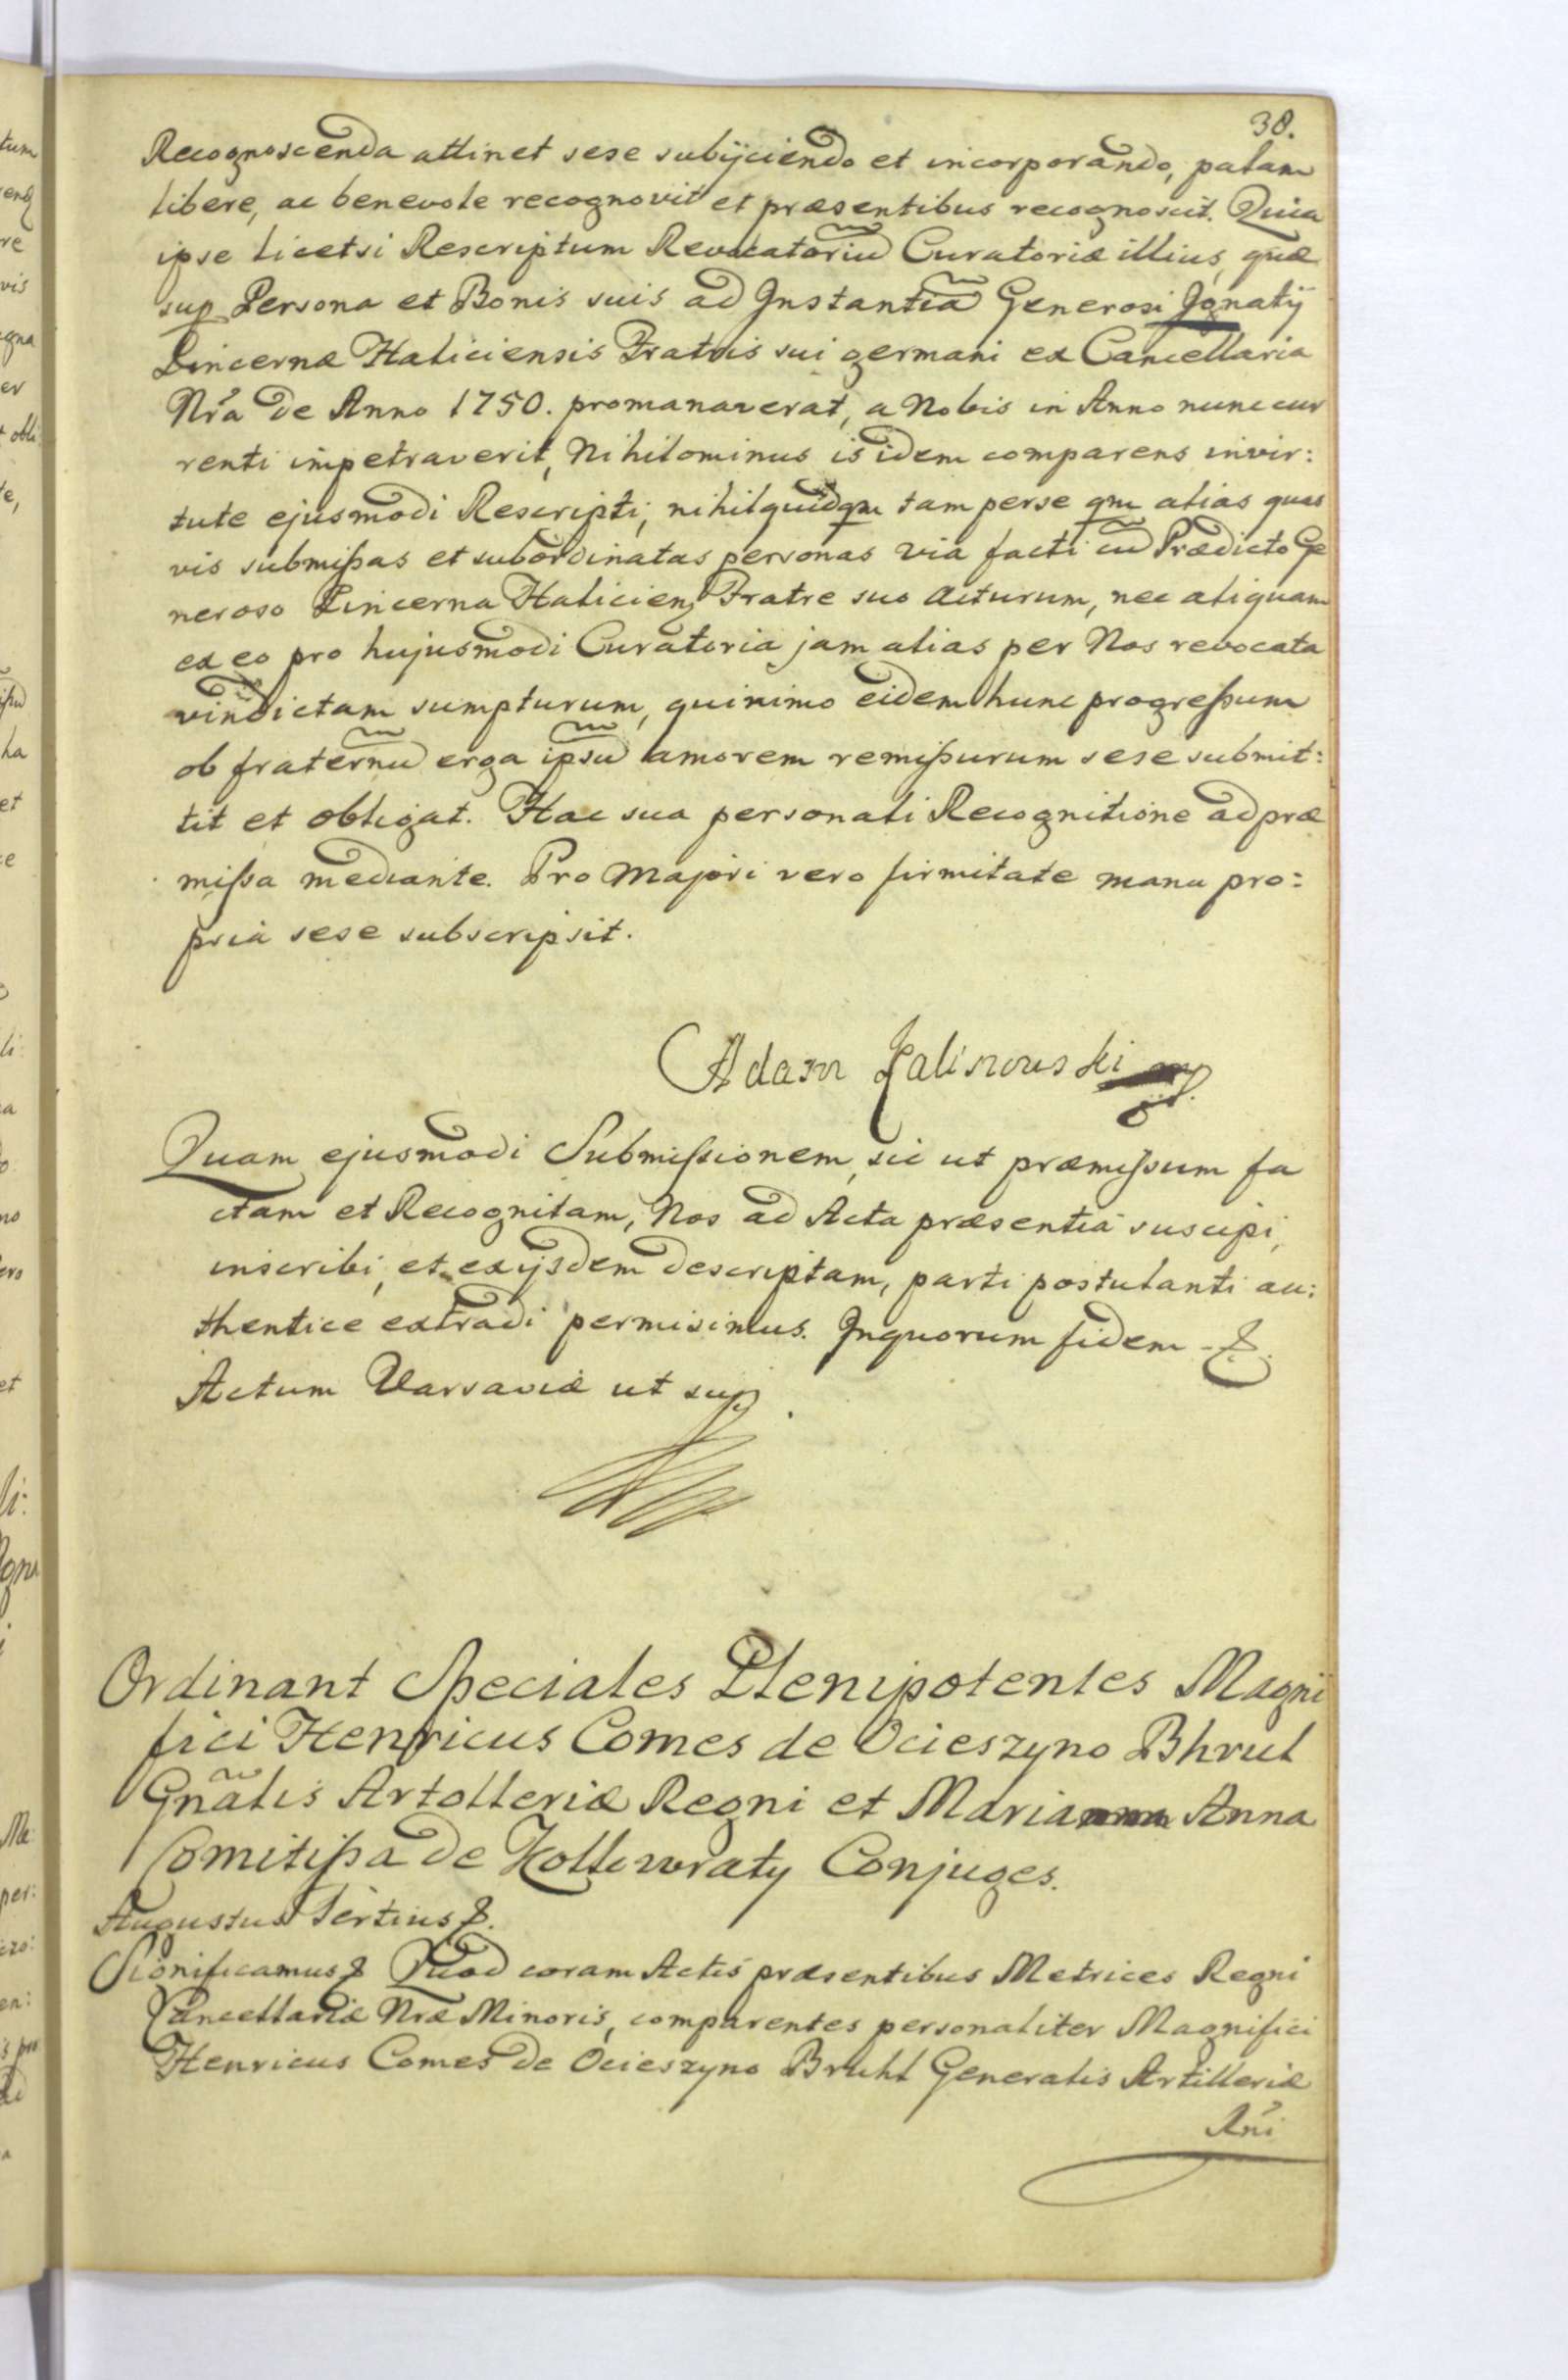 38.
Recognoscenda attinet sese subijciendo et incorporando, palam
libere, ac benevole recognovit et præsentibus recognoscit. Quia
ipse licetsi Rescriptum Revocatoriũ Curatoriæ illius, quæ
sup Persona et Bonis suis ad Instantiã Generosi Ignatij
Pincernæ Haliciensis Fratris sui germani ex Cancellaria
Nr̃a de Anno 1750. promanaverat, a Nobis in Anno nunc cur
renti impetraverit, Nihilominus is idem comparens in vir:
tute ejusmodi Rescripti, nihil quidqm tam per se qm alias quas
vis submißas et subordinatas personas via facti cũ Prædicto Ge
neroso Pincerna Halicien Fratre suo acturum, nec aliquam
ex eo pro hujusmodi Curatoria jam alias per Nos revocata
vindictam sumpturum, quinimo eidem hunc progreßum
ob fraternũ erga ipsũ amorem remißurum sese submit:
tit et obligat. Hac sua personali Recognitione ad præ
mißa mediante. Pro Majori vero firmitate manu pro:
pria sese subscripsit.
Adam Kalinowski mp.
Quam ejusmodi Submißionem, sic ut præmißum fa
ctam et Recognitam, Nos ad Acta præsentia suscipi,
inscribi, et ex ijsdem descriptam, parti postulanti au:
thentice extradi permisimus. In quorum fidem - &.
Actum Varsaviæ ut sup.
Ordinant Speciales Plenipotentes Magni
fici Henricus Comes de Ocieszyno Bhrul
Gñalis Artolleriæ Regni et Maria Anna
Comitißa de Kollowraty Conjuges.
Augustus Tertius &.
Significamus & Quod coram Actis præsentibus Metrices Regni
Cancellariæ Nræ Minoris, comparentes personaliter Magnifici
Henricus Comes de Ocieszyno Bruhl Generalis Artilleriæ
Rñi